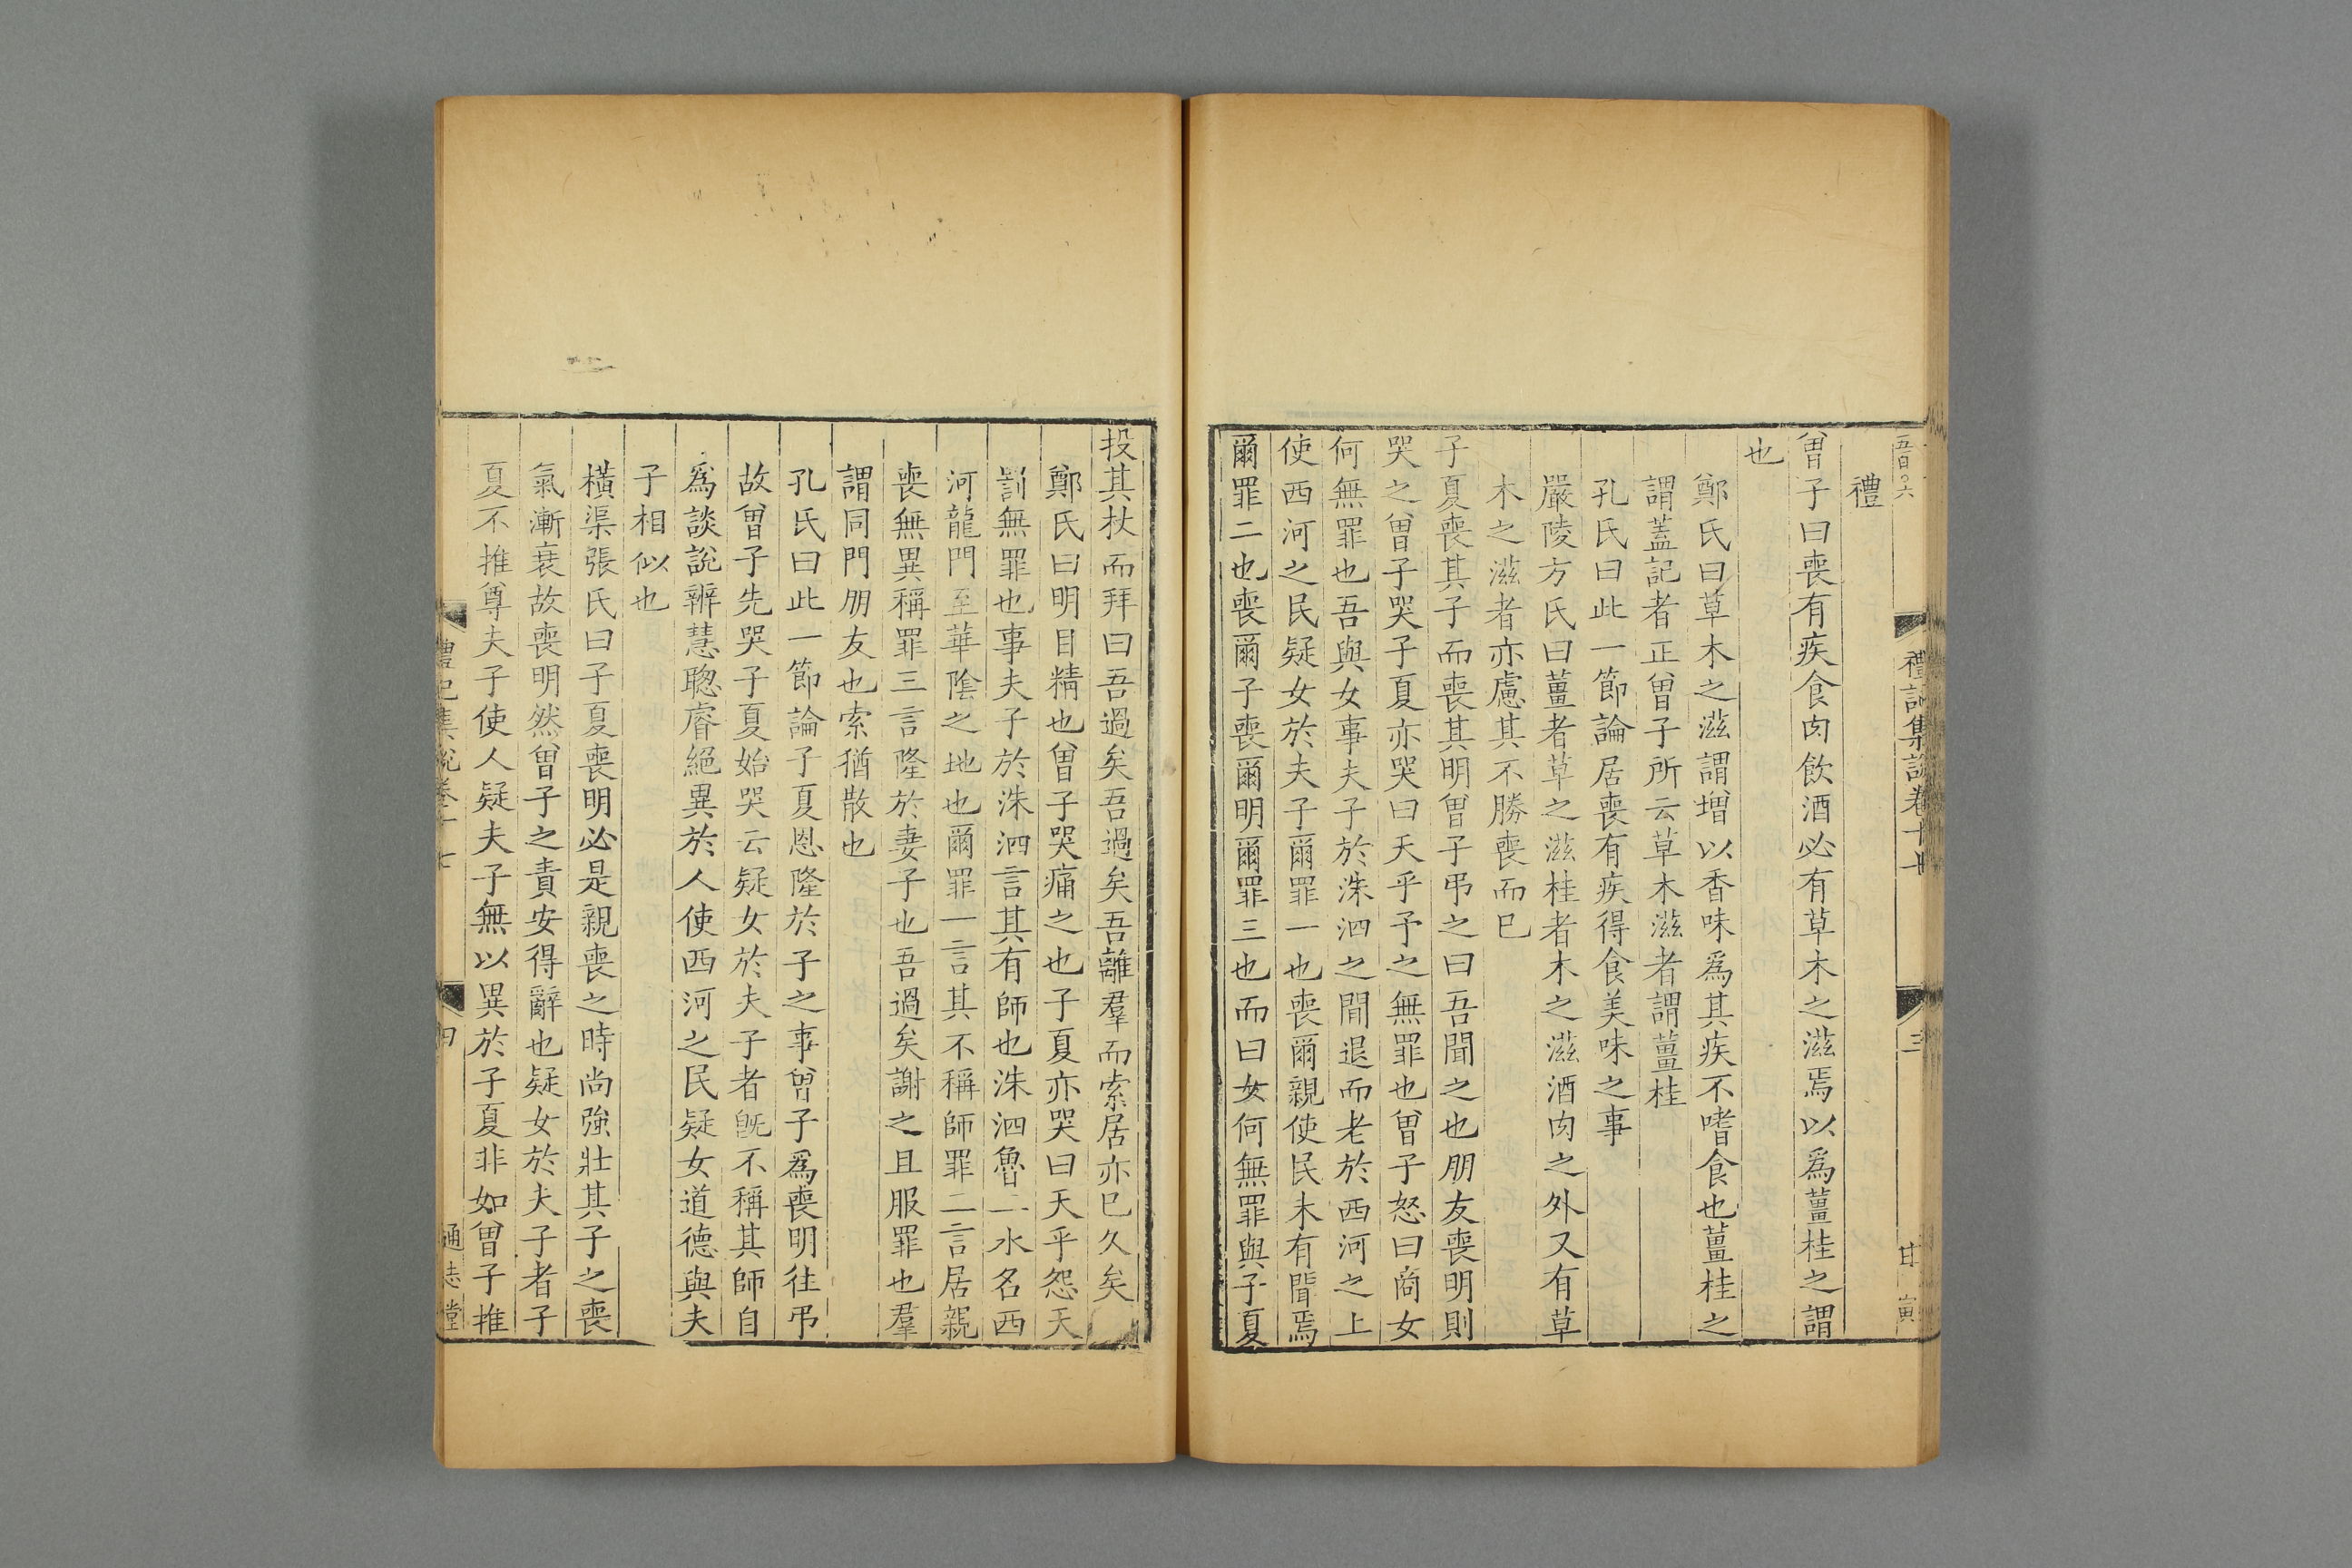 禮
曾子曰喪有疾食肉飲酒必有草木之滋焉以爲薑桂之謂
也
鄭氏曰草木之滋謂增以香味爲其疾不嗜食也薑桂之
謂蓋記者正曾子所云草木滋者謂薑桂
孔氏曰此一節論居喪有疾得食美味之事
嚴陵方氏曰薑者草之滋桂者木之滋酒肉之外又有草
木之滋者亦慮其不勝喪而已
子夏喪其子而喪其明曾子弔之曰吾聞之也朋友喪明則
哭之曾子哭子夏亦哭曰天乎予之無罪也曾子怒曰商女
何無罪也吾與女事夫子於洙泗之間退而老於西河之上
使西河之民疑女於夫子爾罪一也喪爾親使民未有聞焉
爾罪二也喪爾子喪爾明爾罪三也而曰女何無罪與子夏
投其杖而拜曰吾過矣吾過矣吾離羣而索居亦已久矣
鄭氏曰明目精也曾子哭痛之也子夏亦哭曰天乎怨天
罰無罪也事夫子於洙泗言其有師也洙泗魯二水名西
河龍門至華陰之地也爾罪一言其不稱師罪二言居親
喪無異稱罪三言隆於妻子也吾過矣謝之且服罪也羣
謂同門朋友也索猶散也
孔氏曰此一節論子夏恩隆於子之事曾子爲喪明往弔
故曾子先哭子夏始哭云疑女於夫子者旣不稱其師自
爲談說辨慧聰睿絕異於人使西河之民疑女道德與夫
子相似也
橫渠張氏曰子夏喪明必是親喪之時尚強壯其子之喪
氣漸衰故喪明然曾子之責安得辭也疑女於夫子者子
夏不推尊夫子使人疑夫子無以異於子夏非如曾子推
禮記集說卷十七
四
通志堂